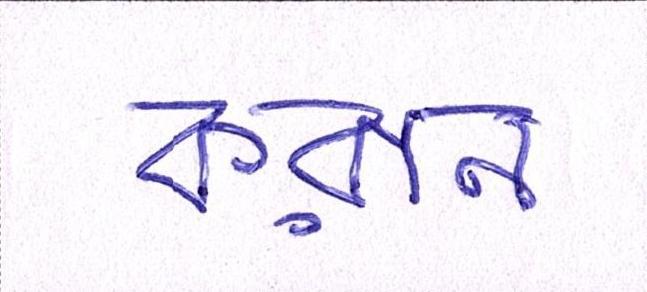 করনি